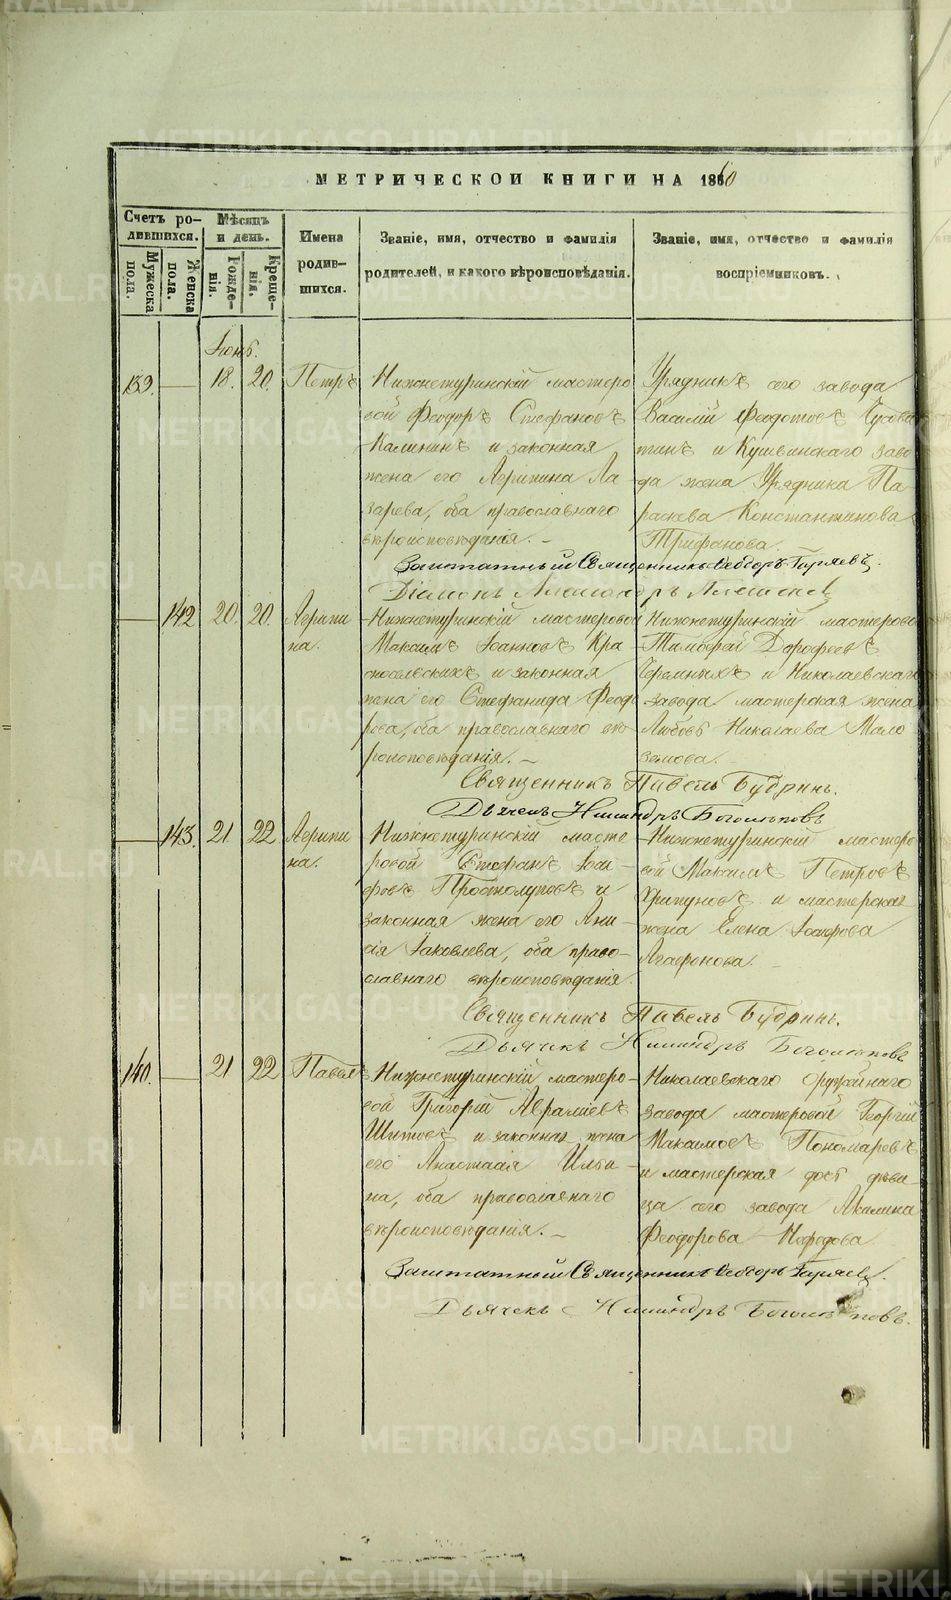 МЕТРИЧЕСКОЙ КНИГИ НА 1860
Счетъ ро-
дившихся.
Мѣсяцъ
и день.
Мужеска
пола.
Женска
пола.
Рожде-
нія.
Креще-
нія.
Имена
родив-
шихся.
Званіе, имя, отчество и фамилія
родителей, и какого вѣроисповѣданія.
Званіе, имя, отчество и фамилія
воспріемниковъ.
Іюнь.
139. — 18. 20. Петръ
Нижнетуринскій мастеро
вой Феодоръ Стефановъ
Калининъ и законная
жена его Агрипина Ла-
зарева, оба православнаго
вѣроисповѣданія. —
Урядникъ сего завода
Василій Феодотовъ Чусова
тинъ и Кушвинскаго заво
да жена Урядника Па-
раскева Константинова
Трифанова.
Заштатный Священникъ Феодоръ Гаряевъ.
Діаконъ Александръ
— 142 20. 20. Агрипи
на.
Нижнетуринскій мастеровой
Максимъ Іоанновъ Кра
сносельскихъ и законная
жена его Стефанида Феодо
рова, оба православнаго вѣ
роисповѣданія. —
Нижнетуринскій мастеровой
Тимофей Дорофеевъ
Черемныхъ и Николаевскаго
завода мастерская жена
Любовь Николаева Мало
земова.
Священникъ Павелъ Будринъ.
Дьячекъ Никандръ Богомоловъ
— 143. 21 22 Агрипи
на.
Нижнетуринскій масте
ровой Стефанъ Іоси-
фовъ Простолуповъ и
законная жена его Ани-
сія Іаковлева, оба право-
славнаго вѣроисповѣданія.
Нижнетуринскій мастеро
вой Максимъ Петровъ
Хрипуновъ и мастерская
жена Елена Іосифова
Агафонова. —
Священникъ Павелъ Будринъ.
Дьячекъ Никандръ Богомоловъ
140. — 21 22 Павелъ
Нижнетуринскій мастеро-
вой Григорій Аврамиевъ
Шитовъ и законная жена
его Анастасія Ильи-
на, оба православнаго
вѣроисповѣданія. —
Николаевскаго оружейнаго
завода мастеровой Георгій
Максимовъ Пономаревъ
и мастерская дочь дѣви-
ца сего завода Акилина
Феодорова Нефедова
Заштатный Священникъ Феодоръ Гаряевъ.
Дьячекъ Никандръ Богомоловъ.
METRIKI.GASO-URAL.RU